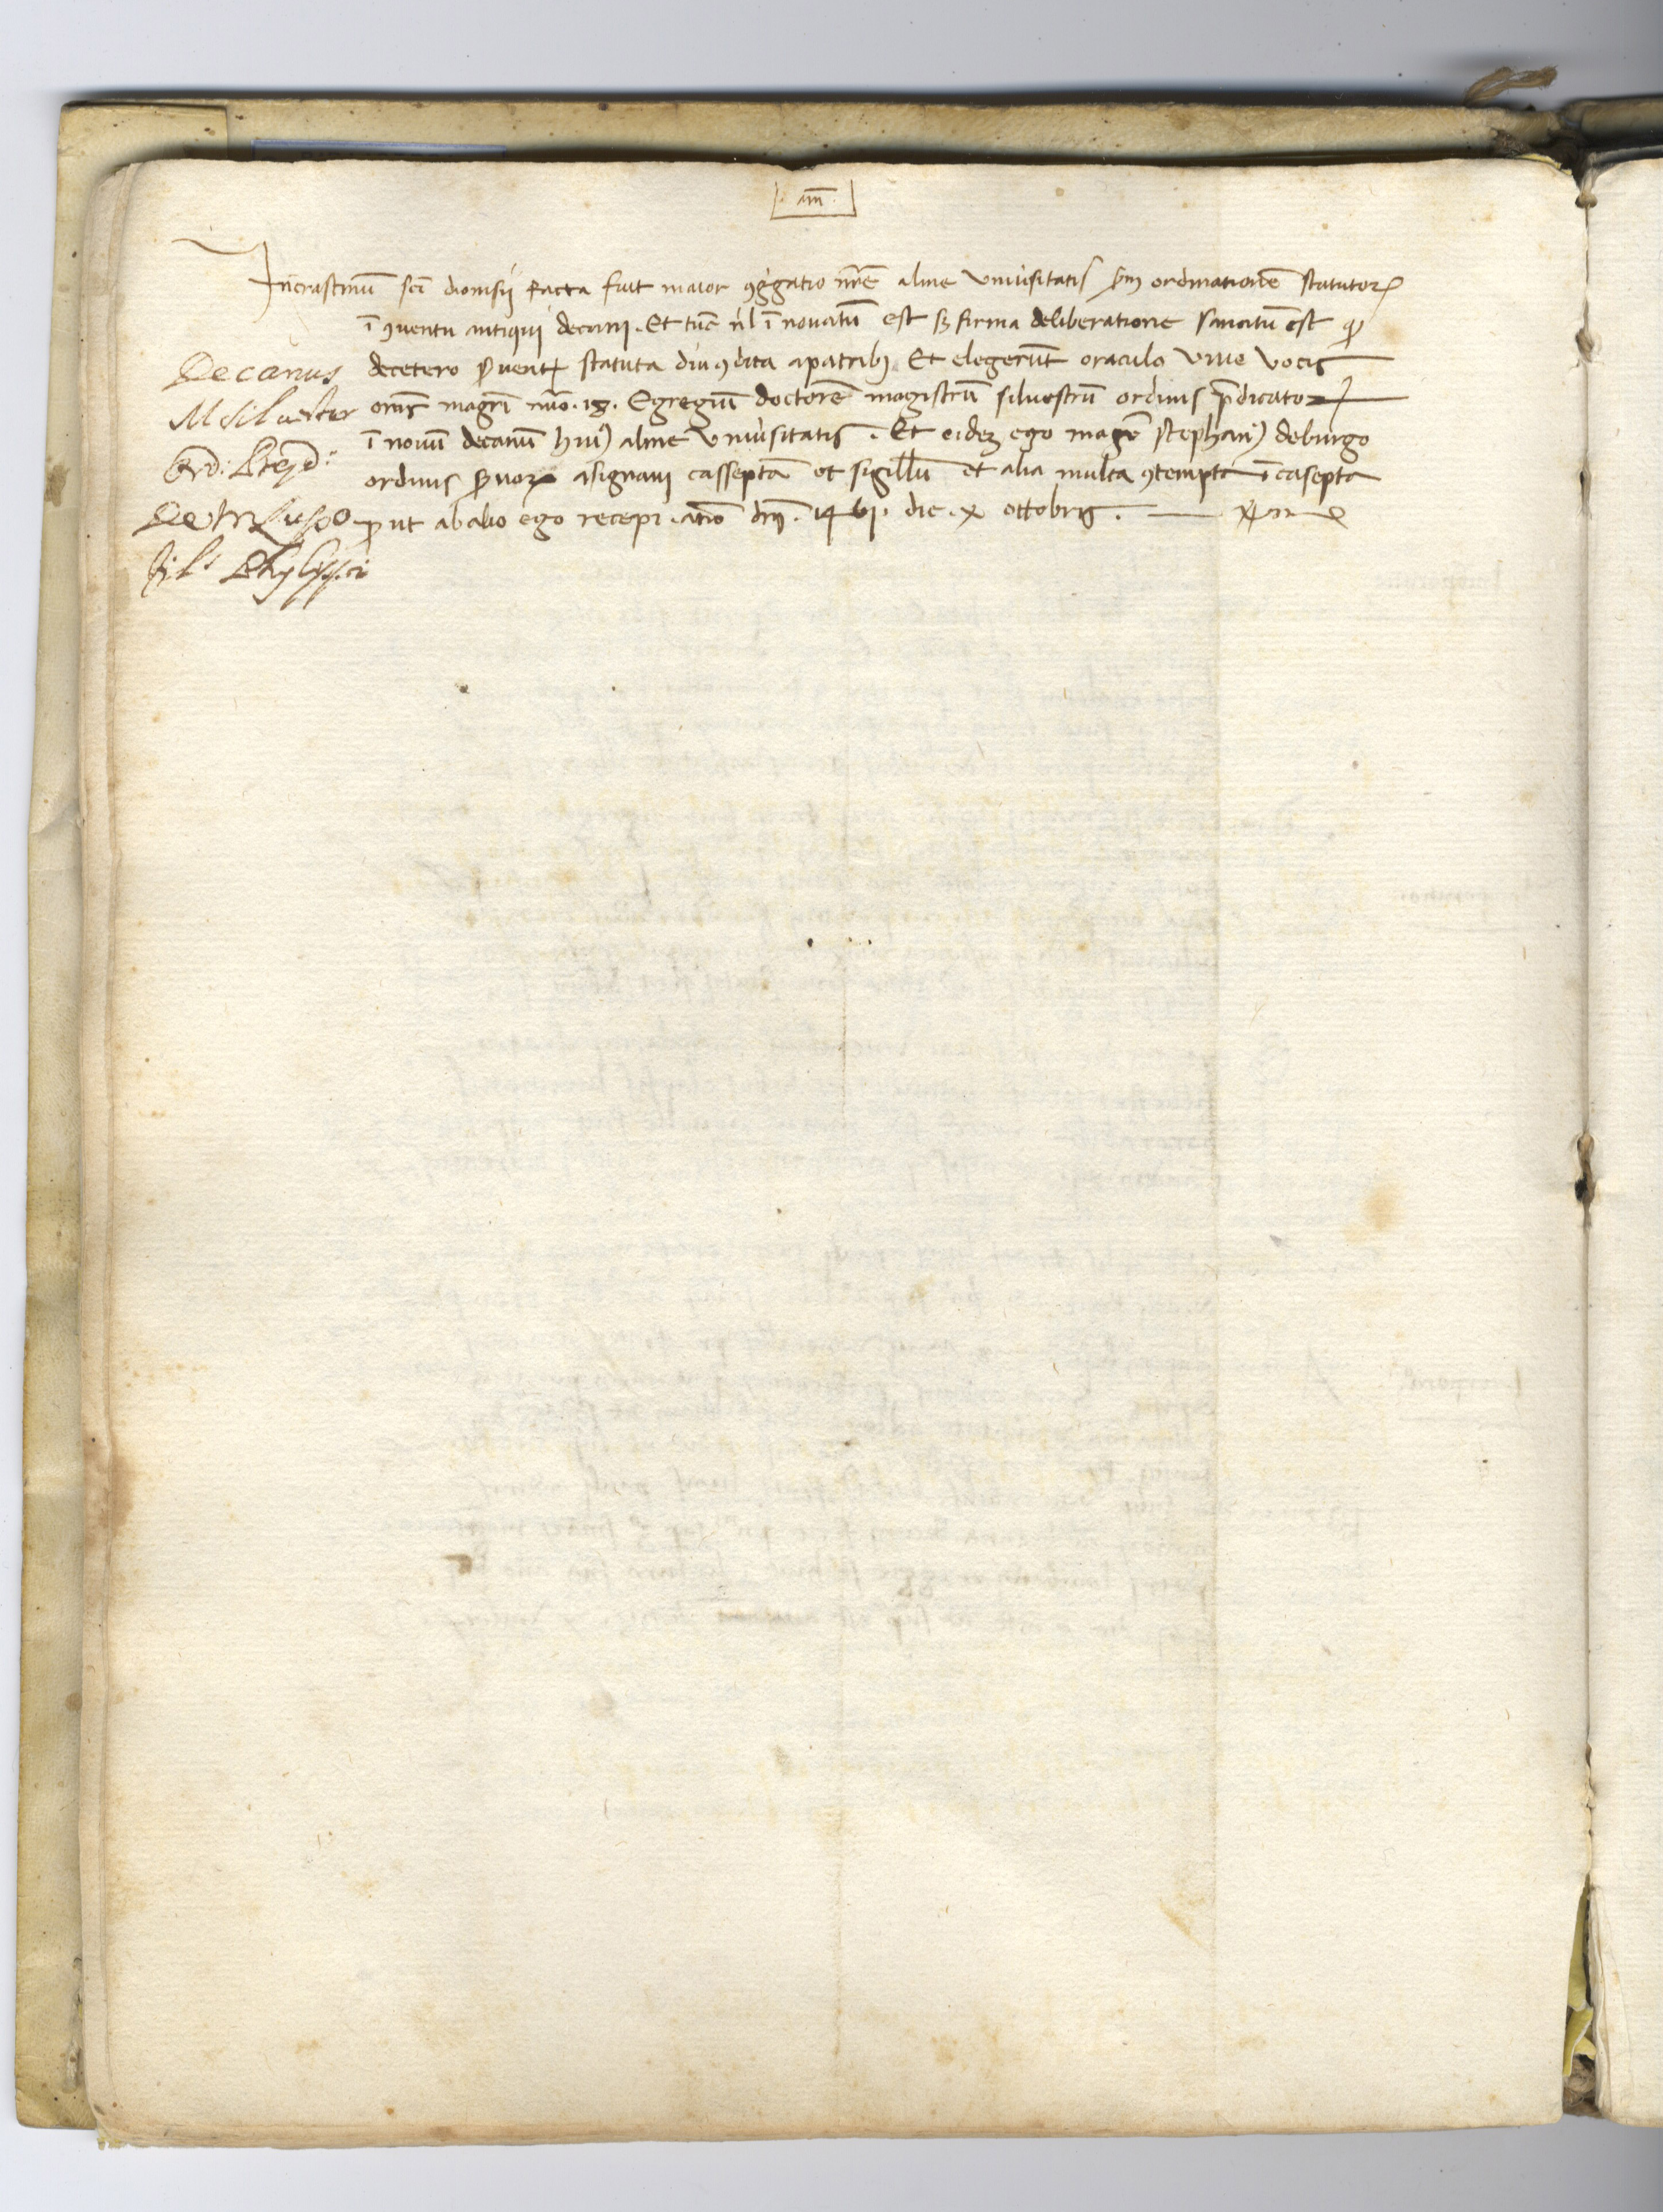 . am̄ .
Incrastinū sc̄i dionisij facta fuit maior ꝯg̈gatio nr̄e alme vniu̾sitatis scd̄m ordinationē statutoꝝ
ī ꝯuentu antiqui decani . Et tūc n̄l īnouatū est sꝫ firma deliberatione sancitū est qꝫ
decetero ẜuent̄ statuta diu ꝯdita apatribꝫ . Et elegerūt oraculo viue vocis
om̄s magr̄i nūo . 18 . Egregiū doctorē magistrū siluestrū ordinis p̄dicatoꝝ
ī nouū decanū huiꝰ alme vniu̾sitatis . Et eidez ego mag̅r stephanꝰ deburgo
ordinis ẜuoꝝ asignaui casseptā et sigillū et alia multa ꝯtempta ī casepta
ꝓut ab alio ego recepi . anō dnī . 1461 . die . x ottobris .
Decanus
M Siluester
Ord: Pred: